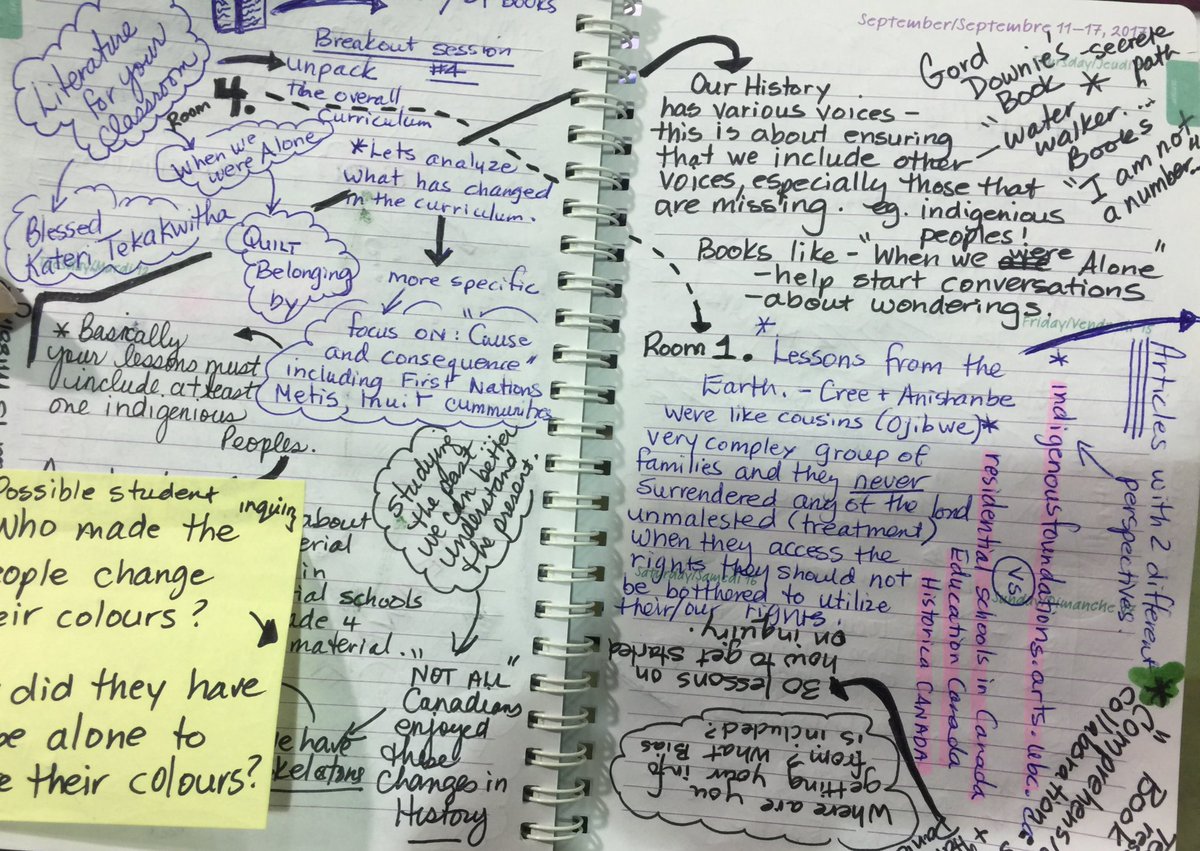 Books
Literature
for your
Classroom
Breakout session
#4
unpack
the overall
Curriculum
Room 4.
When we
were Alone
*Lets analyze
what has changed
in the curriculum.
Blessed
Kateri Tekakwitha
QUILT
Belonging
by
more specific
focus on: "Cause
and consequence"
including First Nations
Metis Inuit cummunities
* Basically
your lessons must
include at least
one indigenious
Peoples.
Studying
the past
we can better
understand
the present.
Possible student
inquiry
who made the
change
colours?
did they have
be alone to
their colours?
about
in
schools
material."
"NOT ALL"
Canadians
enjoyed
these
changes in
History
have
skeletons
September/Septembre 11-17, 2017
Gord
Downies secrete
path
"Book *
water
walker...
Books
"I am not
a number...
Our History
has various voices -
this is about ensuring
that we include other
voices, especially those that
are missing. eg. indigenious
peoples!
Books like - "When we were Alone"
- help start conversations
- about wonderings.
Room 1.
* Lessons from the
Earth. - Cree + Anishanbe
were like cousins (Ojibwe)*
very compley group of
families and they never
surrendered any of the lond
unmalested (treatment)
when they access the
rights they should not
be botthored to utilize
their/our rights.
Saturday/Samedi 16
Sunday/Dimanche
30 lessons on
how to get started
on inquiry.
Where are you
getting your info
from? What Bias
is included?
Articles with 2 different
perspectives.
* indigenousfoundations.arts.ubc.ca
vs
residential schools in Canada
Education Canada
Historica CANADA
* Collaboration
"Comprehension
Book